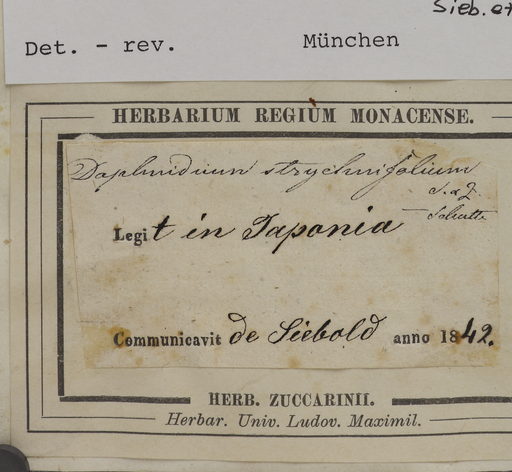 Sieb. et
Det. - rev. München
HERBARIUM REGIUM MONACENSE.
Daphnidium strychnifolium
S. & Z.
Legit in Japonia
Communicavit de Siebold anno 1842.
HERB. ZUCCARINII.
Herbar. Univ. Ludov. Maximil.